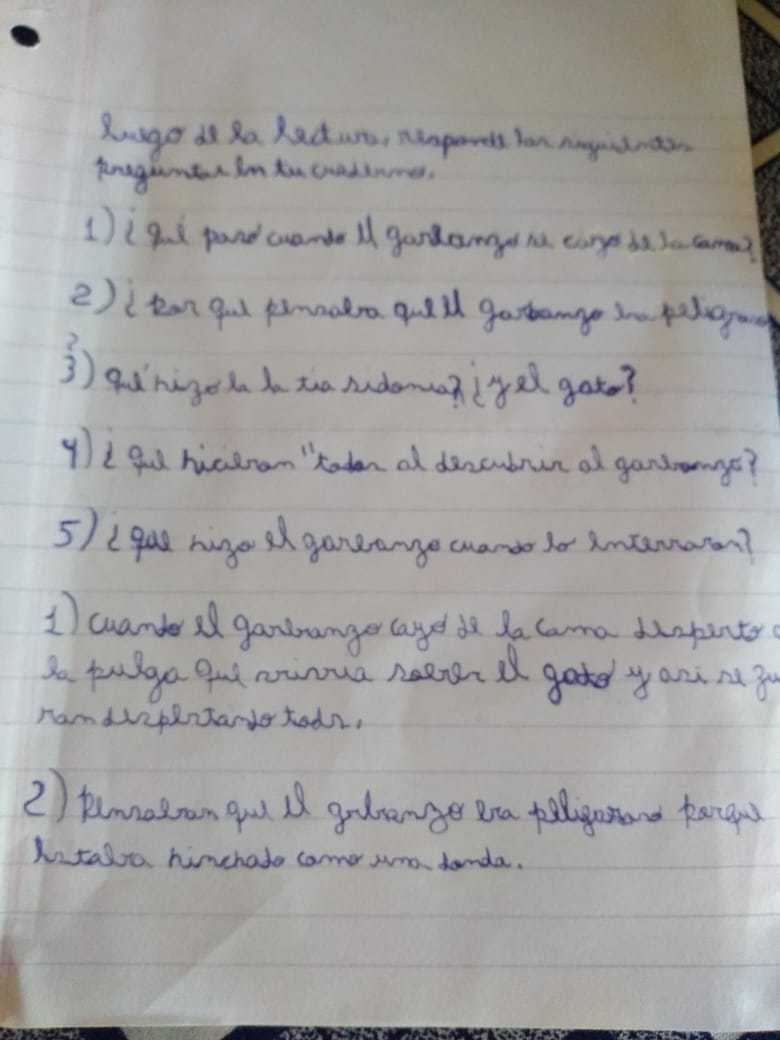 luego de la lectura, responde las siguientes
preguntas en tu cuaderno.
1) ¿qué pasó cuando el garbanzo se cayo de la cama?
2) ¿Por que pensaba que el garbanzo era peligroso
3) ¿qué hizo la la tia sidonia? ¿y el gato?
4) ¿que hicieron "todos al descubrir al garbanzo?
5) ¿que hizo el garbanzo cuando lo enterraron?
1) cuando el garbanzo cayó de la cama desperto a
la pulga que vivia sobre el gato y asi se fu
ron despertando todos.
2) Pensaban que el grbanzo era peligroso porque
estaba hinchado como una